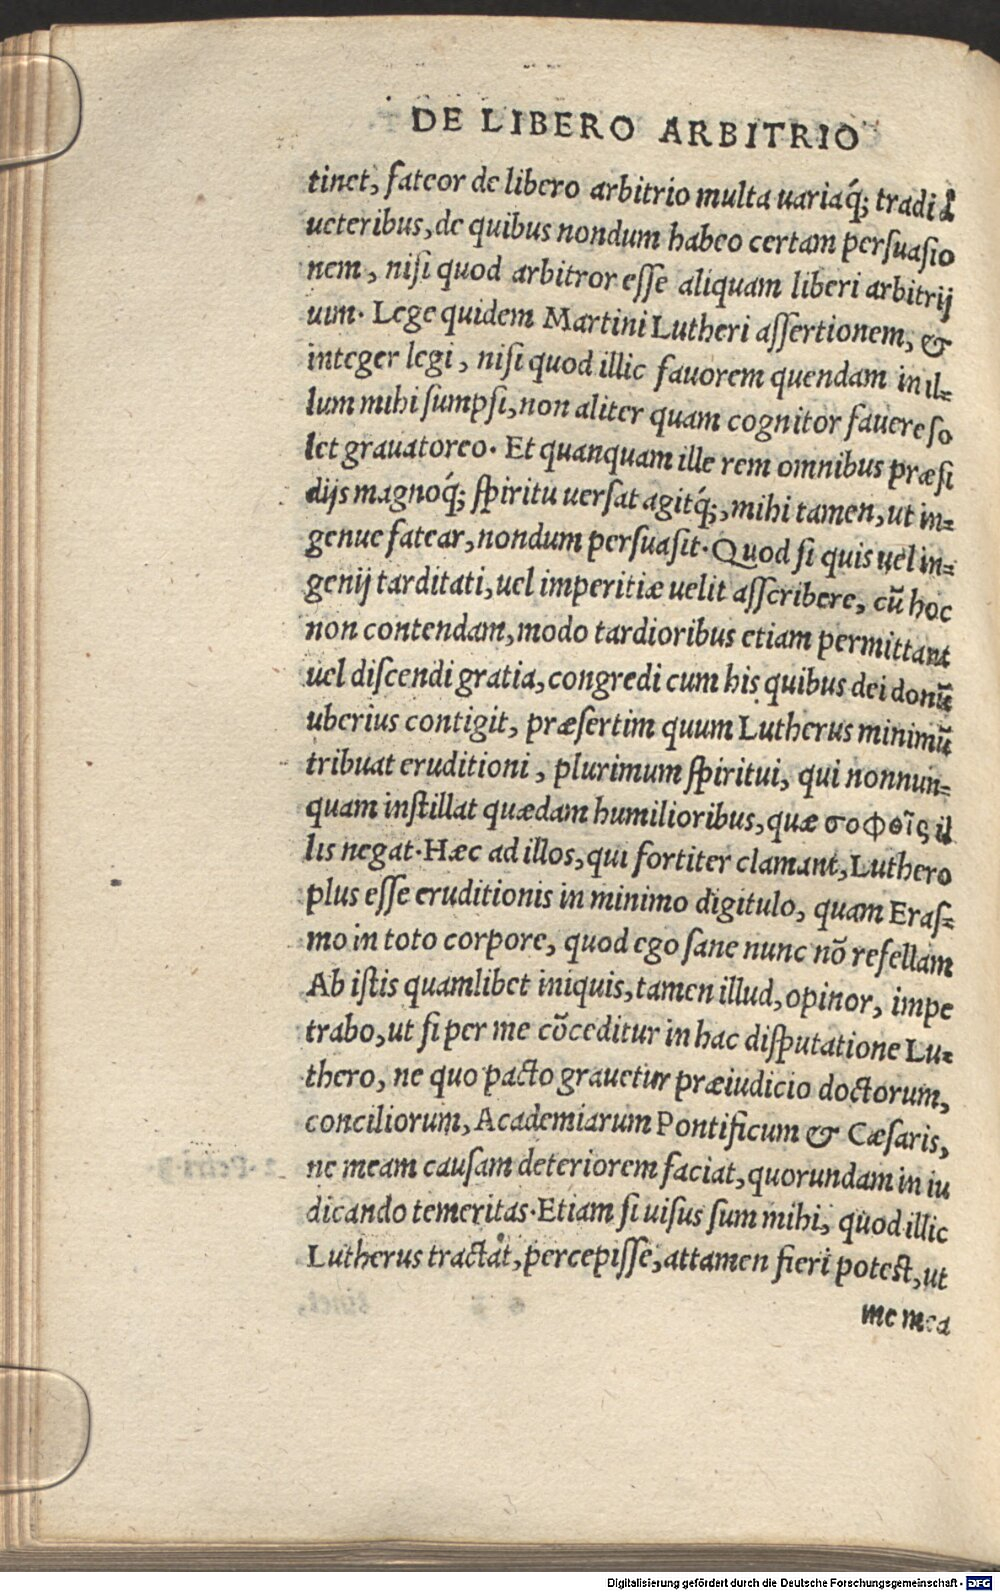 DE LIBERO ARBITRIO
tinet, fateor de libero arbitrio multa uariaq́; tradi à
ueteribus, de quibus nondum habeo certam persuasio
nem, nisi quod arbitror esse aliquam liberi arbitrij
uim. Lege quidem Martini Lutheri assertionem, &
integer legi, nisi quod illic fauorem quendam in il=
lum mihi sumpsi, non aliter quam cognitor fauere so
let grauatoreo. Et quanquam ille rem omnibus præsi
dijs magnoq́; spiritu uersat agitq́;, mihi tamen, ut in=
genue fatear, nondum persuasit. Quod si quis uel in=
genij tarditati, uel imperitiæ uelit asscribere, cū hoc
non contendam, modo tardioribus etiam permittant
uel discendi gratia, congredi cum his quibus dei donū
uberius contigit, præsertim quum Lutherus minimū
tribuat eruditioni, plurimum spiritui, qui nonnun=
quam instillat quædam humilioribus, quæ σοφοῖς il
lis negat. Hæc ad illos, qui fortiter clamant, Luthero
plus esse eruditionis in minimo digitulo, quam Eras=
mo in toto corpore, quod ego sane nunc nō refellam
Ab istis quamlibet iniquis, tamen illud, opinor, impe
trabo, ut si per me cōceditur in hac disputatione Lu=
thero, ne quo pacto grauetur præiudicio doctorum,
conciliorum, Academiarum Pontificum & Cæsaris,
ne meam causam deteriorem faciat, quorundam in iu
dicando temeritas. Etiam si uisus sum mihi, quod illic
Lutherus tractat, percepisse, attamen fieri potest, ut
me mea
Digitalisierung gefördert durch die Deutsche Forschungsgemeinschaft - DFG